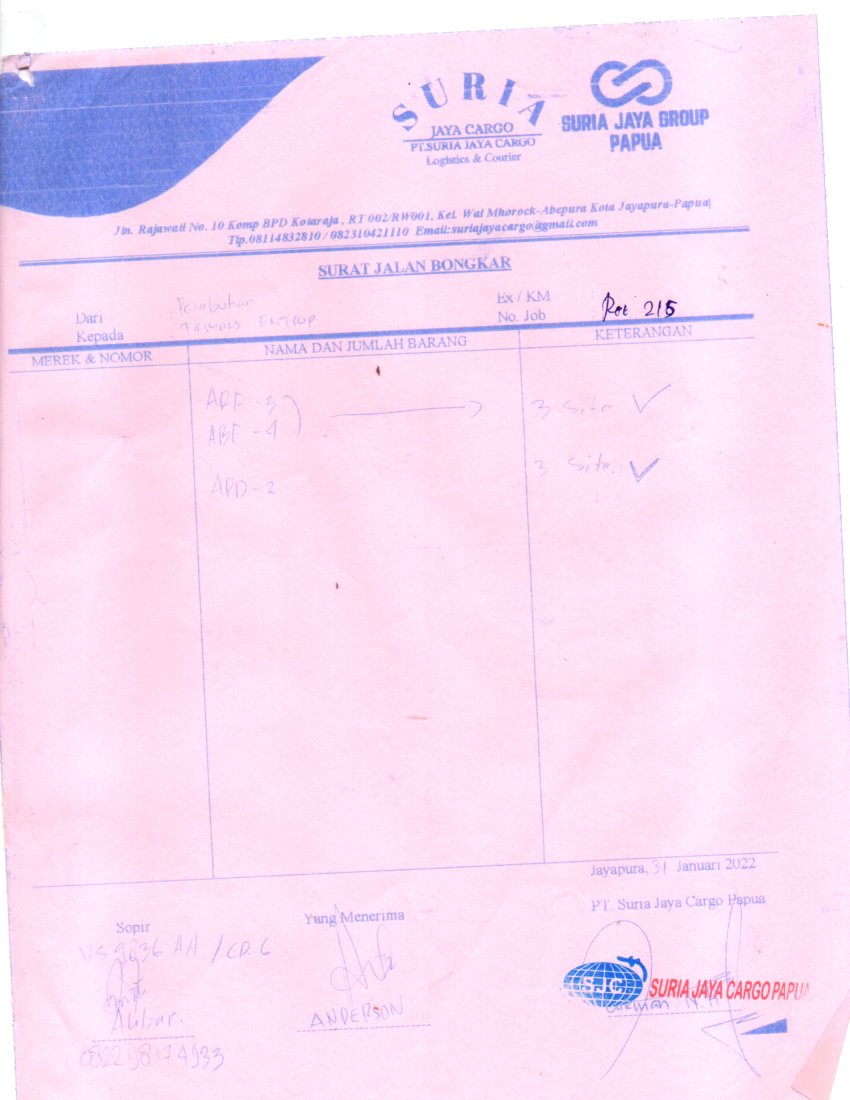 SURIA
JAYA CARGO
PT.SURIA JAYA CARGO
Logistics & Courier
SURIA JAYA GROUP
PAPUA
Jln. Rajawali No. 10 Komp BPD Kotaraja , RT 002/RW001, Kel. Wai Mhorock-Abepura Kota Jayapura-Papua
Tlp.08114832810 / 082310421110 Email:suriajayacargo@gmail.com
SURAT JALAN BONGKAR
Dari : Pelabuhan
Kepada : Entrop
Ex / KM
No. Job : 215
MEREK & NOMOR NAMA DAN JUMLAH BARANG KETERANGAN
- 3 3 Site ✓
ABF - 4
APD - 2 3 Site. ✓
Jayapura, 31 Januari 2022
Sopir Yang Menerima PT. Suria Jaya Cargo Papua
AH / CD 6
SJC SURIA JAYA CARGO PAPUA
ANDERSON